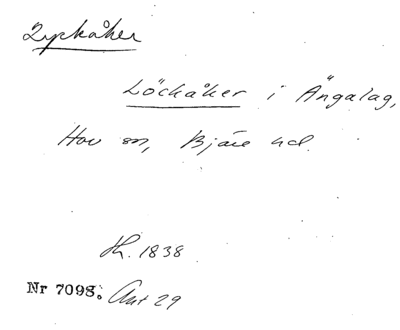 Lyckåker
Löckåker i Ängalag,
Hov sn, Bjäre hd.
Sk. 1838
Nr 7098. Ant 29